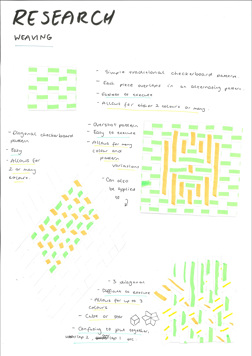 RESEARCH
WEAVING
- Simple traditional checkerboard pattern
- Each piece overlaps in an alternating pattern
- Easiest to execute
- Allows for either 2 colours or many
- Diagonal checkerboard
pattern
- Easy
- Allows for
2 or many
colours.
- Overshot pattern
- Easy to execute
- Allows for many
colour and
pattern
variations
- Can also
be applied
to
- 3 diagonal
- Difficult to execute
- Allows for up to 3
colours
- Cube or star
- Confusing to put together,